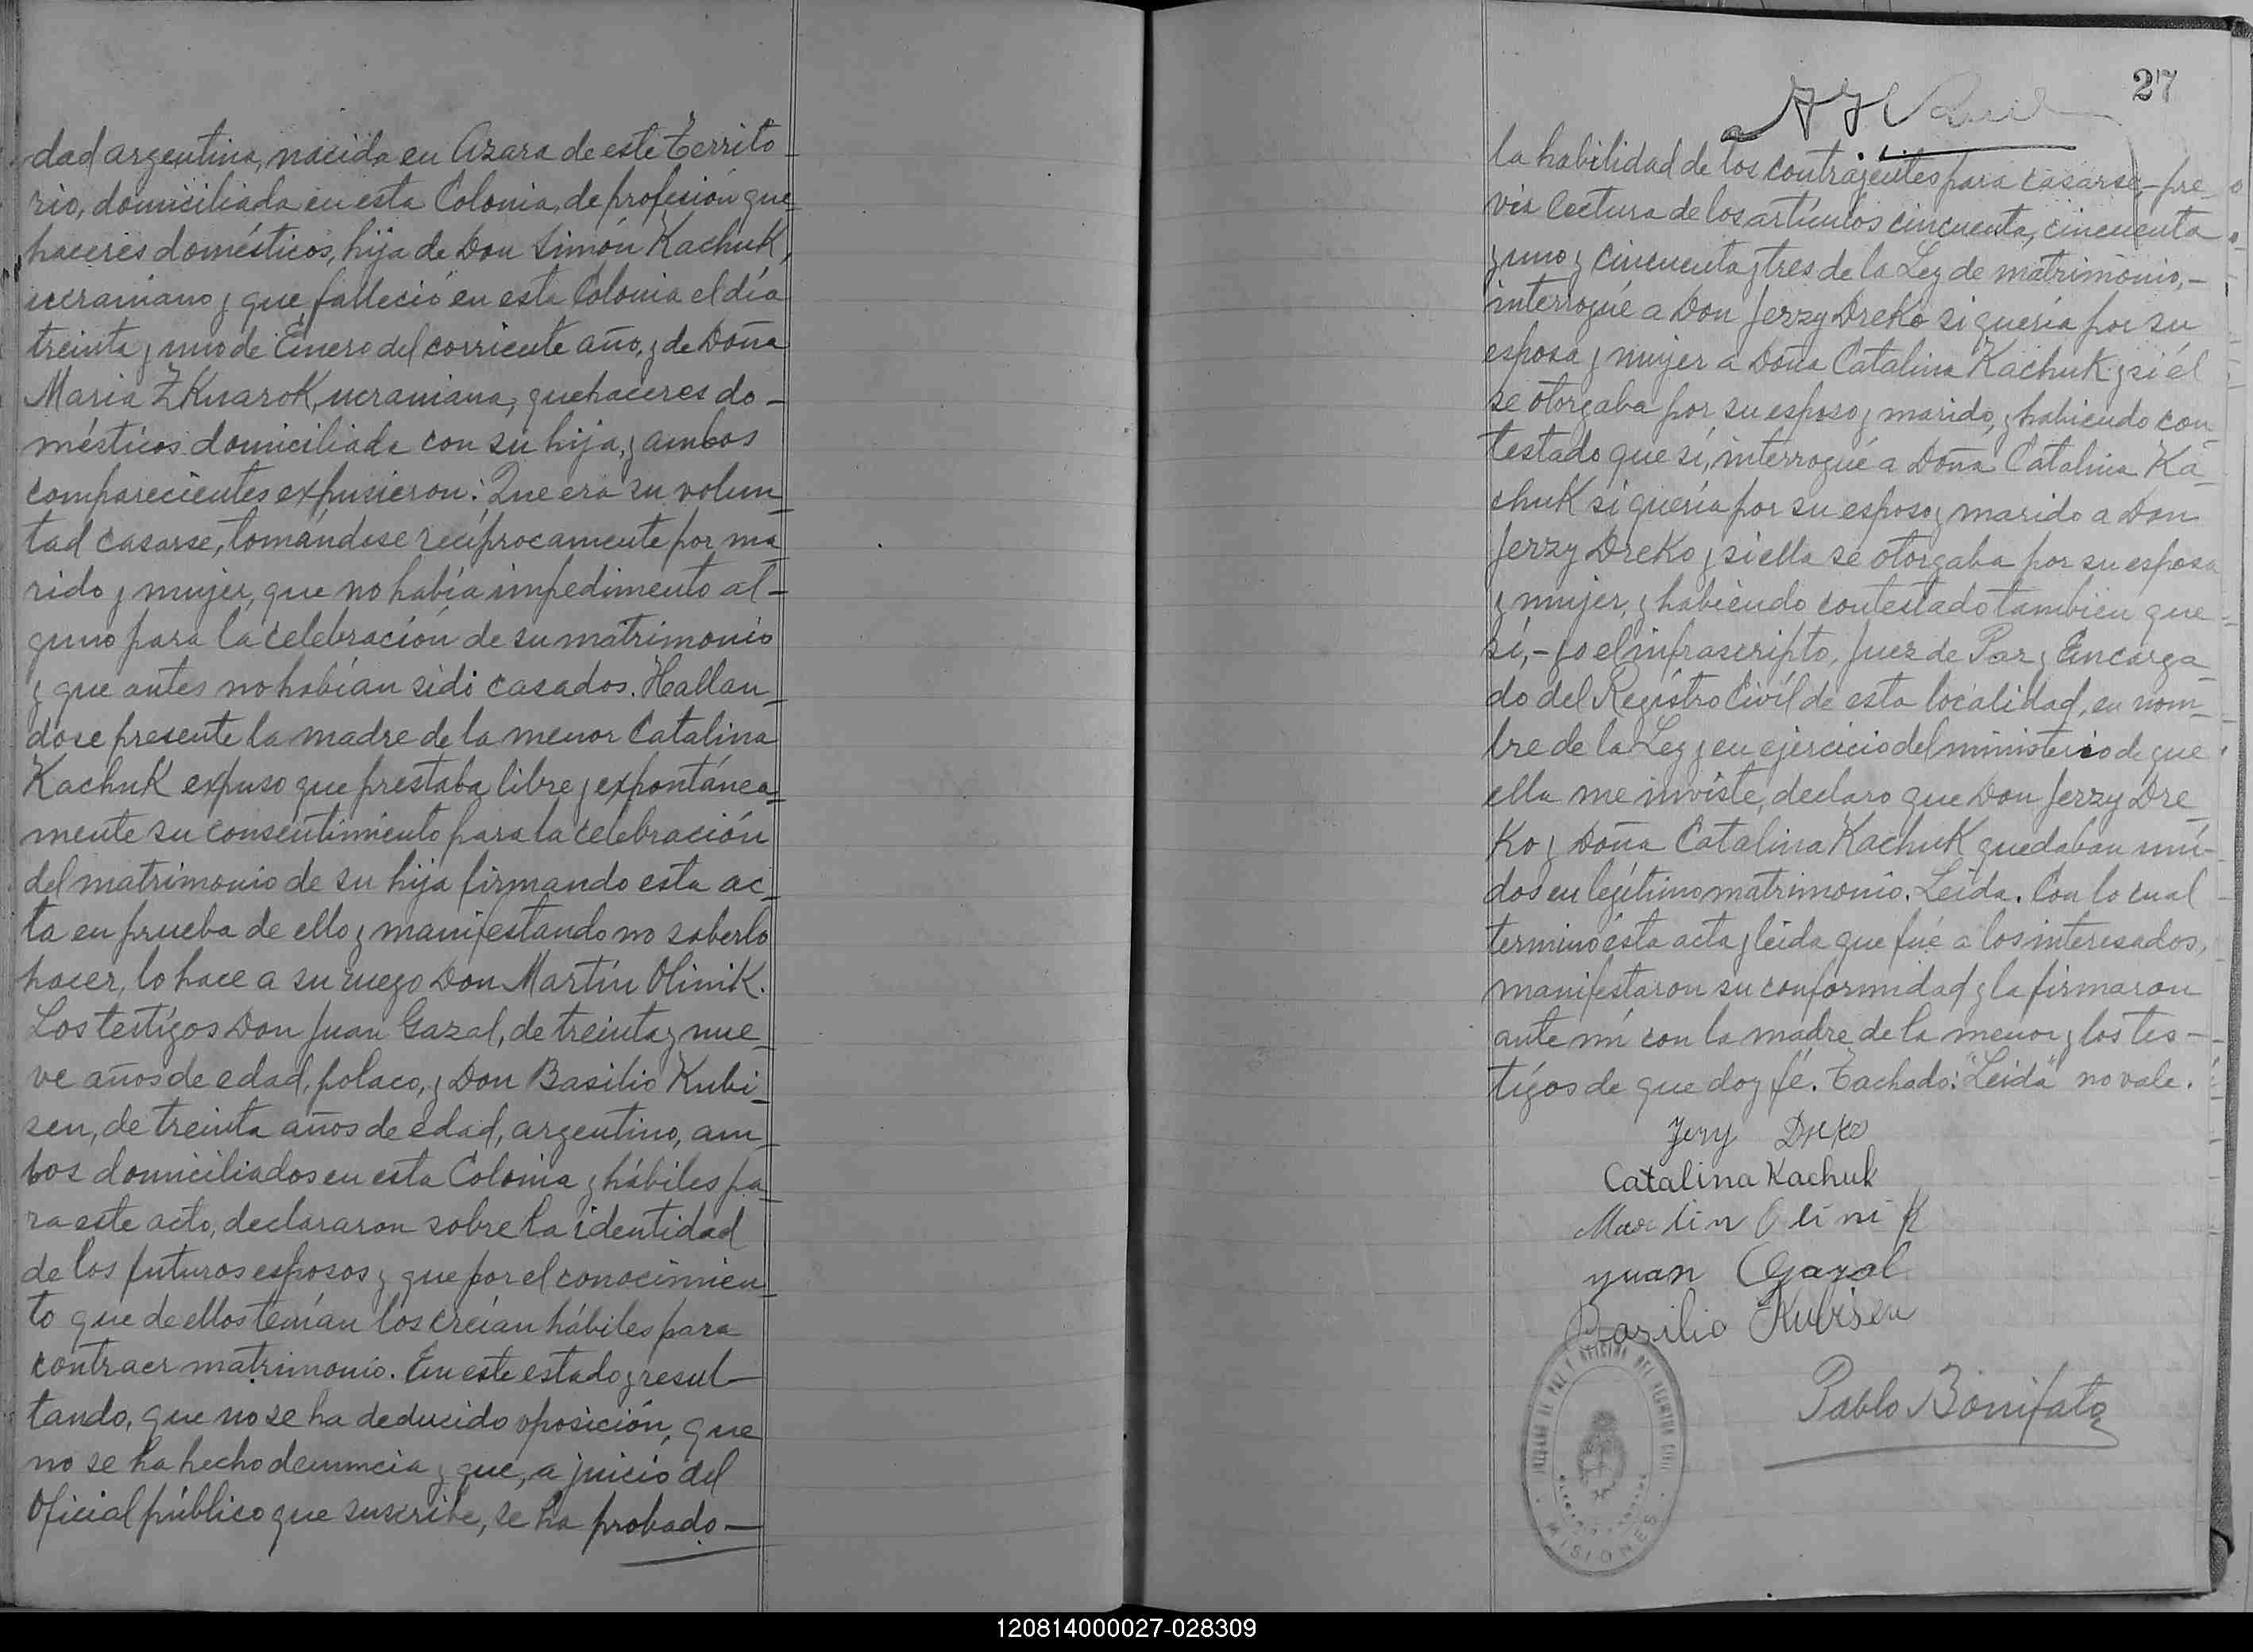 dad argentina, nacida en Azara de este Territo-
rio, domiciliada en esta Colonia, de profesión que-
haceres domésticos, hija de Don Simón Kachuk,
ucraniano y que falleció en esta Colonia el día
treinta y uno de Enero del corriente año, y de Doña
Maria ZKnarok, ucraniana, quehaceres do-
mésticos domiciliada con su hija, y ambos
comparecientes expusieron: Que era su volun-
tad casarse, tomándose recíprocamente por ma-
rido y mujer, que no había impedimento al-
guno para la celebración de su matrimonio
y que antes no habían sido casados. Hallan-
dose presente la madre de la menor Catalina
Kachuk expuso que prestaba libre y expontánea-
mente su consentimiento para la celebración
del matrimonio de su hija firmando esta ac-
ta en prueba de ello y manifestando no saberlo
hacer, lo hace a su ruego Don Martín Olinik.
Los testígos Don Juan Gazal, de treinta y nue-
ve años de edad, polaco, y Don Basilio Kubi-
sen, de treinta años de edad, argentino, am-
bos domiciliados en esta Colonia y hábiles pa-
ra este acto, declararon sobre la identidad
de los futuros esposos y que por el conocimien-
to que de ellos tenían los creían hábiles para
contraer matrimonio. En este estado y resul-
tando, que no se ha deducido oposición, que
no se ha hecho denuncia y que, a juicio del
Oficial público que suscribe, se ha probado—
27
la habilidad de los contrajentes para casarse,- pre-
via lectura de los artículos cincuenta, cincuenta
y uno y cincuenta y tres de la Ley de matrimonio,-
interrogué a Don Jerzy Dreko si quería por su
esposa y mujer a Doña Catalina Kachuk y si él
se otorgaba por su esposo y marido, y habiendo con-
testado que sí, interrogué a Doña Catalina Ka-
chuk si quería por su esposo y marido a Don
Jerzy Dreko y si ella se otorgaba por su esposa
y mujer, y habiendo contestado tambien que
sí,- yo el infrascripto, Juez de Paz y Encarga-
do del Regístro Civíl de esta localidad, en nom-
bre de la Ley y en ejercicio del ministerio de que
ella me inviste, declaro que Don Jerzy Dre-
ko y Doña Catalina Kachuk quedaban uni-
dos en legítimo matrimonio. Leída. Con lo cual
terminó esta acta y leída que fué a los interesados,
manifestaron su conformidad y la firmaron
ante mí con la madre de la menor y los tes-
tígos de que doy fé. Tachado: "Leída" no vale.
Jerzy Dreko
Catalina Kachuk
Martin Olinik
yuan Gazal
Basilio Kubisen
Pablo Bonifato
JUZGADO DE PAZ Y OFICINA DEL REGISTRO CIVIL
MISIONES
120814000027-028309